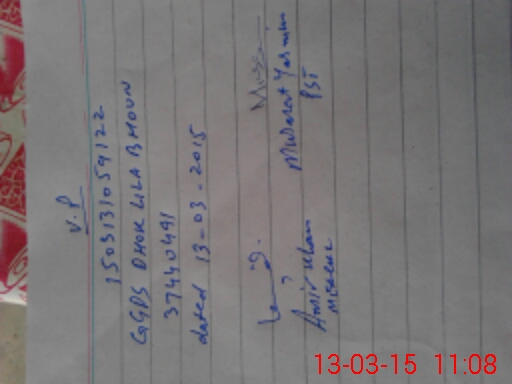 V.P
1503131059122
GGPS DHOK LILA BHOUN
37440491
dated 13-03-2015
Miss
Musarat Yasmin
PST
Amir Khan
13-03-15 11:08